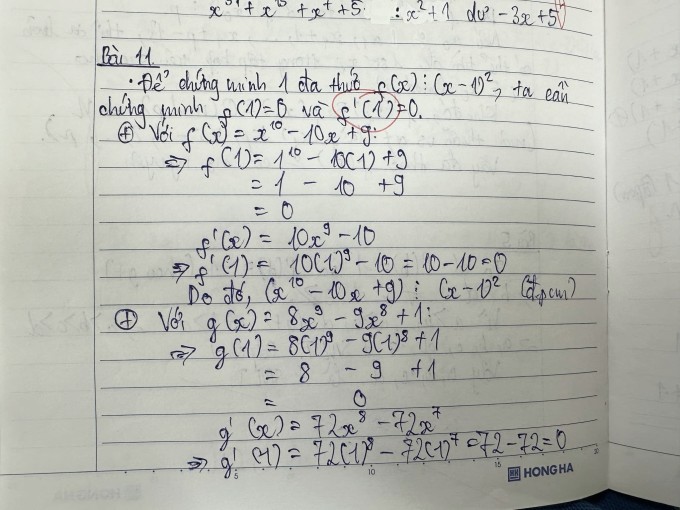 x³¹ + x¹³ + x⁷ + 5 : x² + 1 dư - 3x + 5
Bài 11.
• Để chứng minh 1 đa thức f(x) ⋮ (x - 1)², ta cần
chứng minh f(1) = 0 và f'(1) = 0.
⊕ Với f(x) = x¹⁰ - 10x + 9:
⇒ f(1) = 1¹⁰ - 10(1) + 9
= 1 - 10 + 9
= 0
f'(x) = 10x⁹ - 10
⇒ f'(1) = 10(1)⁹ - 10 = 10 - 10 = 0
Do đó, (x¹⁰ - 10x + 9) ⋮ (x - 1)² (đpcm)
⊕ Với g(x) = 8x⁹ - 9x⁸ + 1:
⇒ g(1) = 8(1)⁹ - 9(1)⁸ + 1
= 8 - 9 + 1
= 0
g'(x) = 72x⁸ - 72x⁷
⇒ g'(1) = 72(1)⁸ - 72(1)⁷ = 72 - 72 = 0
5 10 15 20
HONG HA